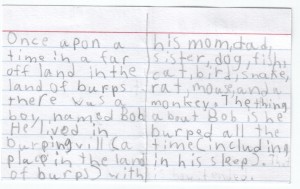 Once upon a
time in a far
off land in the
land of burps
there was a
boy, named Bob
He lived in
burpingvill (a
place in the land
of burps) with
his mom, dad,
sister, dog, fish,
cat, bird, snake,
rat, mouse, and a
monkey. The thing
about Bob is he
burped all the
time (including
in his sleep).